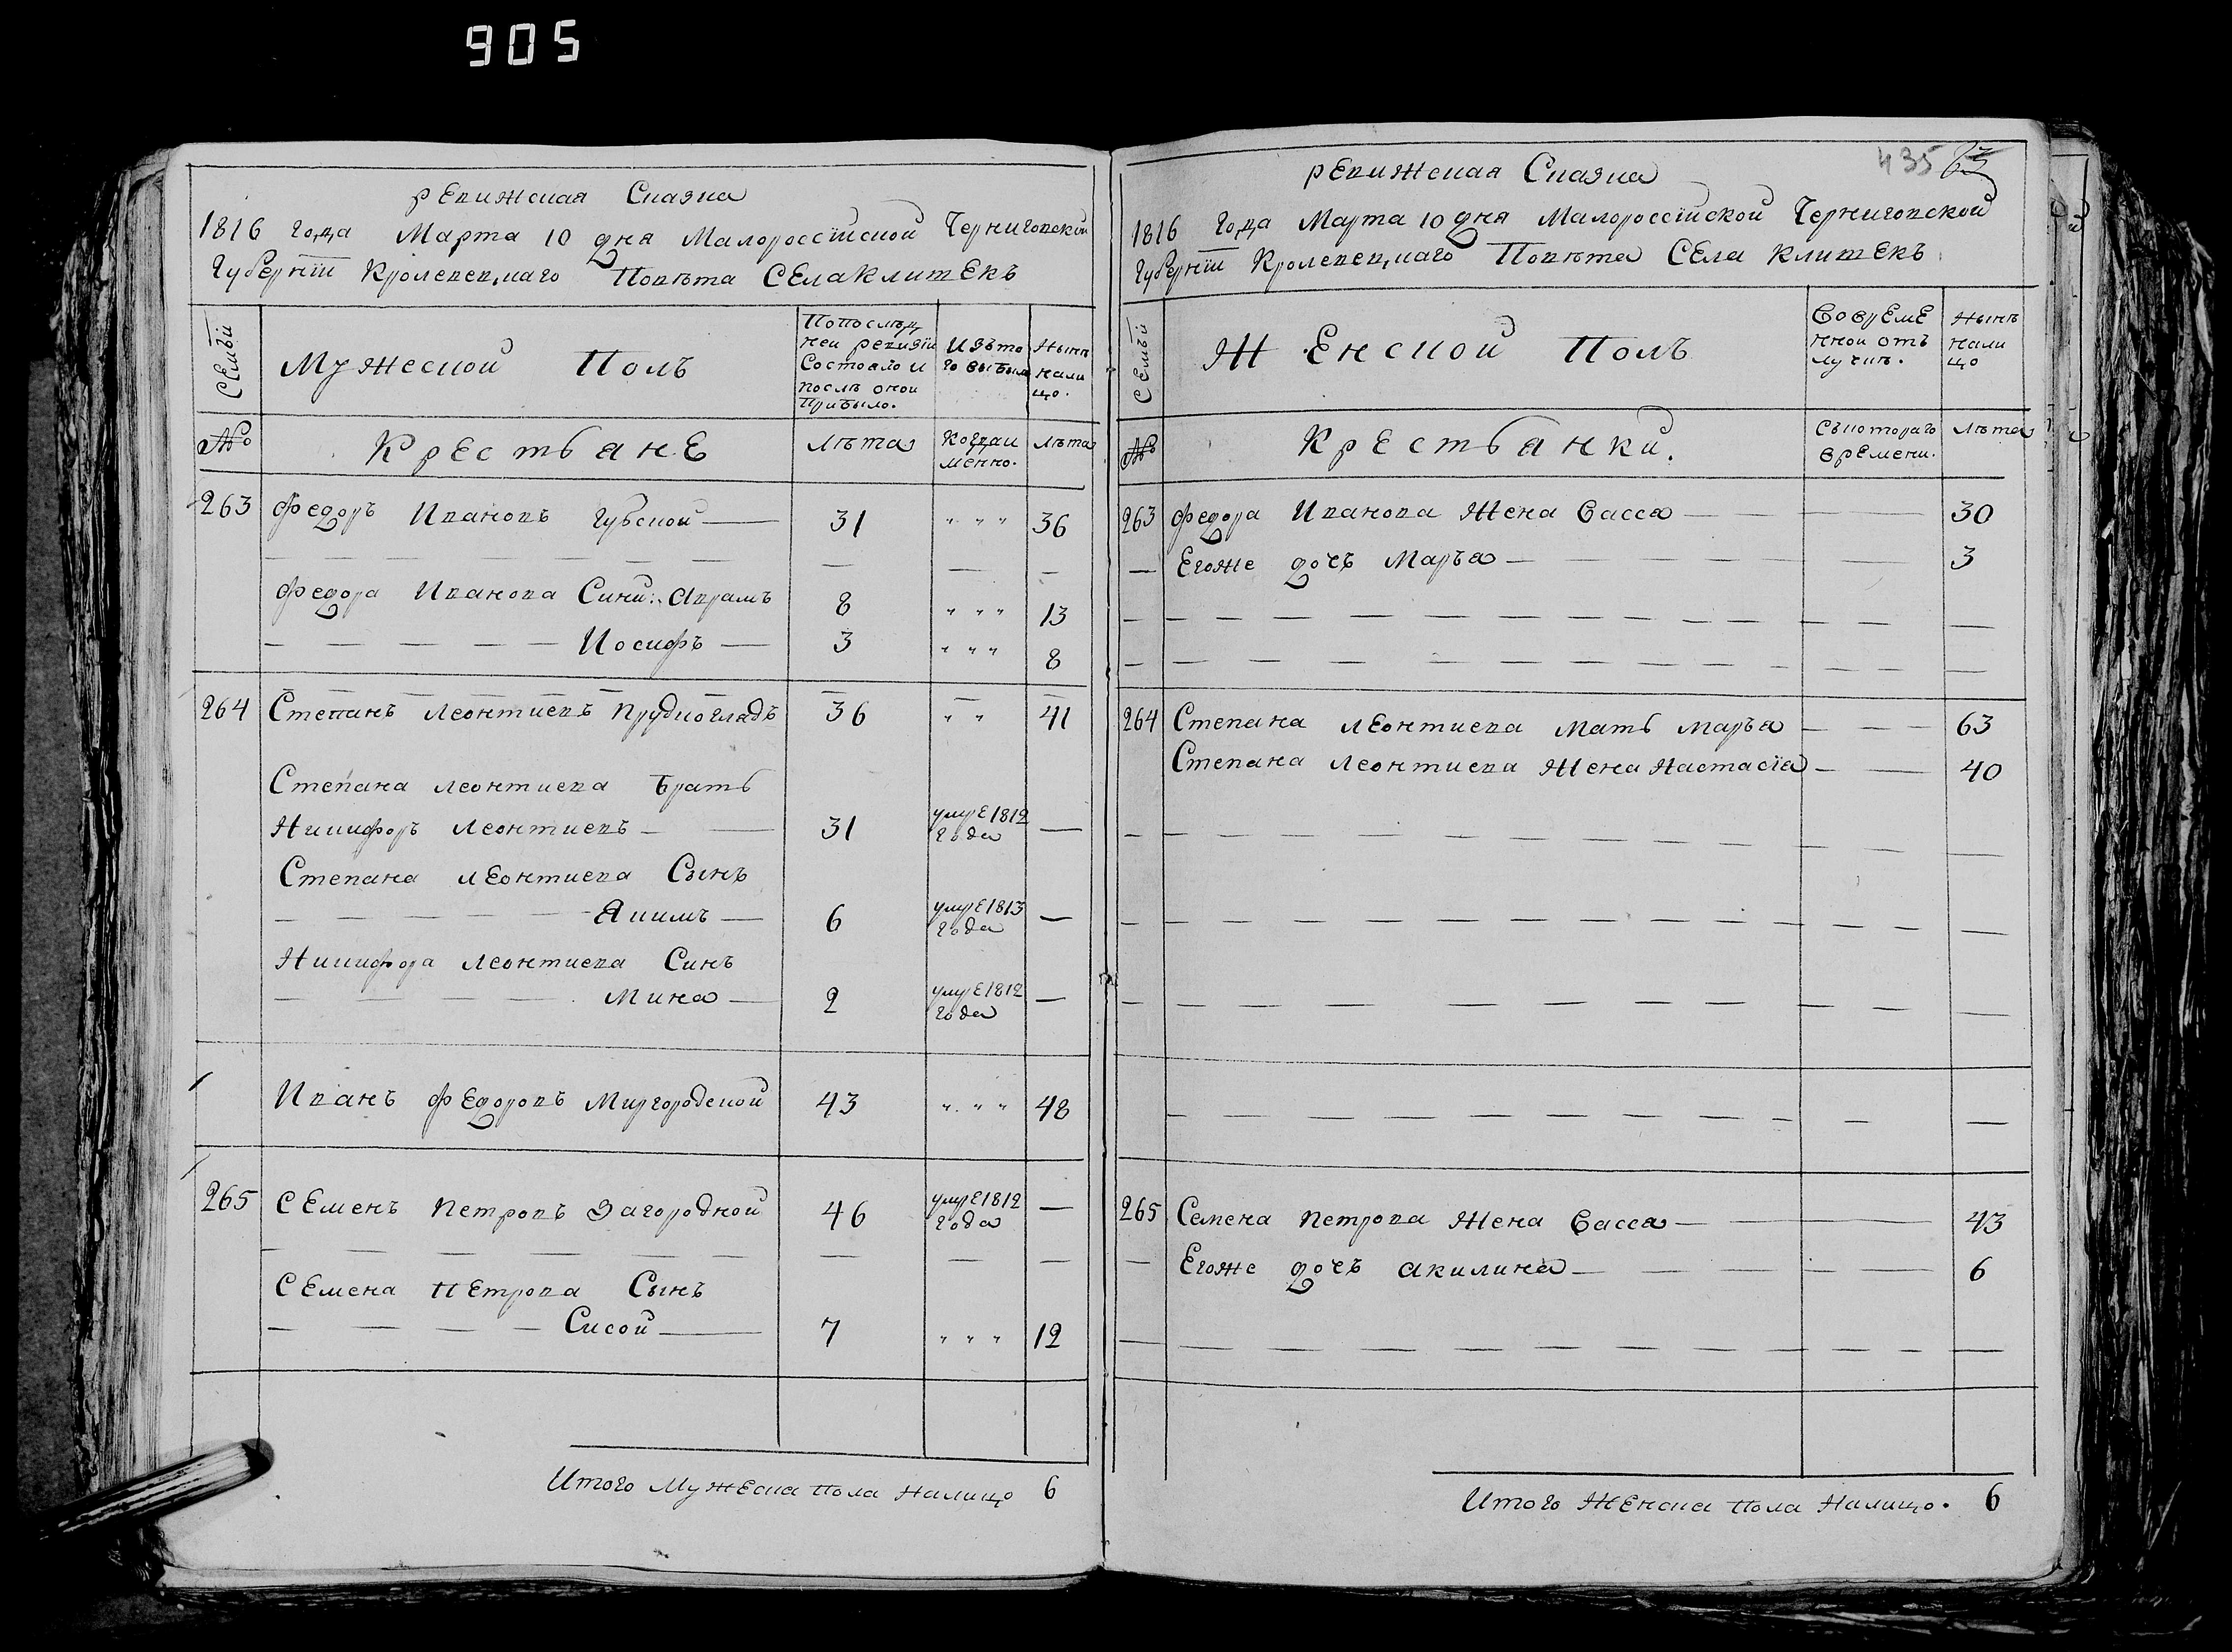 905
ревижская Сказка
1816 года Марта 10 дня Малороссійской Черниговской
Губерніи Кролевец,каго Повѣта СЕла Клишекъ
СЕмьи
Мужеской Полъ
По послѣд
ней ревизіи
Состояло и
послѣ оной
прибыло.
Изъ то
го выбыло
Нынѣ
нали
цо.
№
КрЕстьянЕ
лѣта
Когда и
менно.
лѣта
263 Федоръ Ивановъ Губской 31 " " " 36
Федора Иванова Сини: Аврамъ 8 " " " 13
Иосифъ 3 " " " 8
264 Степанъ Леонтиевъ Прудкогладъ 36 " " 41
Степана Леонтиева Братъ
Никифоръ Леонтиевъ 31 умрЕ 1812
года
Степана лЕонтиева Сынъ
Якимъ 6 умрЕ 1813
года
Никифора Леонтиева Синъ
Мина 2 умрЕ 1812
года
Иванъ фЕдоровъ Миргородской 43 " " " 48
265 СЕменъ Петровъ Загородной 46 умрЕ 1812
года
СЕмена пЕтрова Сынъ
Сисой 7 " " " 12
Итого МужЕска пола Налицо 6
435
ревижская Сказка
1816 года Марта 10 дня Малороссійской Черниговской
Губерніи Кролевец,каго Повѣта СЕла КлишЕкъ
СЕмьи
ЖЕнской Полъ
Во врЕмЕ
нной отъ
лучкѣ.
Нынѣ
нали
цо
№
КрЕстьянки.
Съ котораго
врЕмени.
лѣта
263 Федора Иванова Жена Васса 30
Егоже дочъ Маръя 3
264 Степана лЕонтиева мать маръя 63
Степана Леонтиева Жена Настасіа 40
265 Семена Петрова Жена Васса 43
Егоже дочъ акилина 6
Итого ЖЕнска пола Налицо. 6